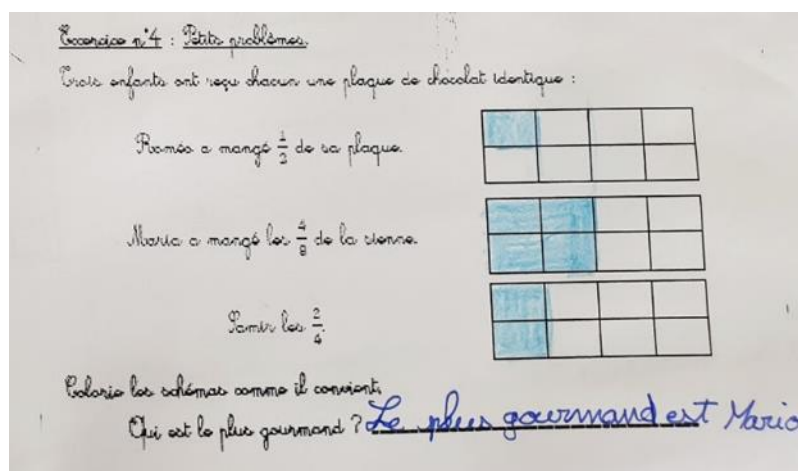 Exercice n°4 : Petits problèmes.
Trois enfants ont reçu chacun une plaque de chocolat identique :
Roméo a mangé 1/2 de sa plaque.
Maria a mangé les 4/8 de la sienne.
Samir les 2/4.
Colorie les schémas comme il convient.
Qui est le plus gourmand ? Le plus gourmand est Mario